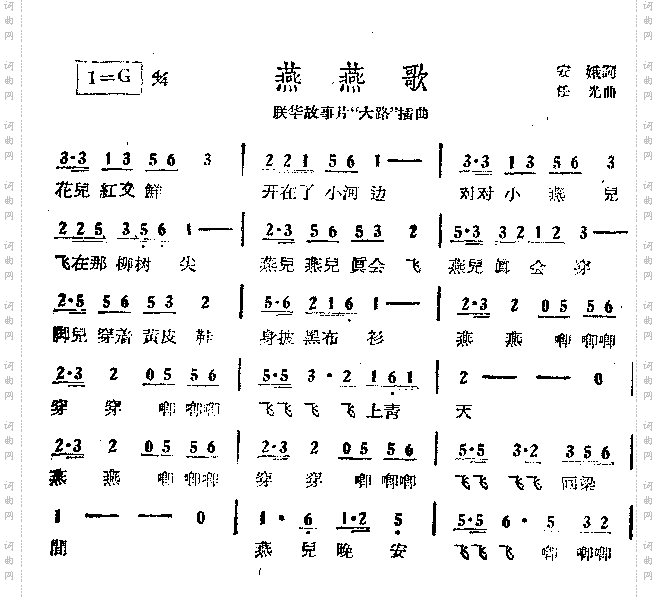 1=G 4/4
燕燕歌
安娥詞
任光曲
联华故事片“大路”插曲
3·3 1 3 5 6 3 | 2 2 1 5 6 1 — | 3·3 1 3 5 6 1
花兒 紅又 鮮 开在了 小河 边 对对 小 燕 兒
2 2 5 3 5 6 1 — | 2·3 5 6 5 3 2 | 5·3 3 2 1 2 3 —
飞在那 柳树 尖 燕兒 燕兒 眞会 飞 燕兒 眞 会 穿
2·5 5 6 5 3 2 | 5·6 2 1 6 1 — | 2·3 2 0 5 5 6
脚兒 穿着 黃皮 鞋 身披 黑布 衫 燕 燕 唧 唧唧
2·3 2 0 5 5 6 | 5·5 3 · 2 1 6 1 | 2 — — 0
穿 穿 唧 唧唧 飞飞 飞 飞 上青 天
2·3 2 0 5 5 6 | 2·3 2 0 5 5 6 | 5·5 3·2 3 5 6
燕 燕 唧 唧唧 穿 穿 唧 唧唧 飞飞 飞飞 回梁
1 — — 0 | 1 · 6 1·2 5 | 5·5 6 · 5 3 2
間 燕 兒 晚 安 飞飞 飞 唧 唧唧
词曲网
词曲网
词曲网
词曲网
词曲网
词曲网
词曲网
词曲网
词曲网
词曲网